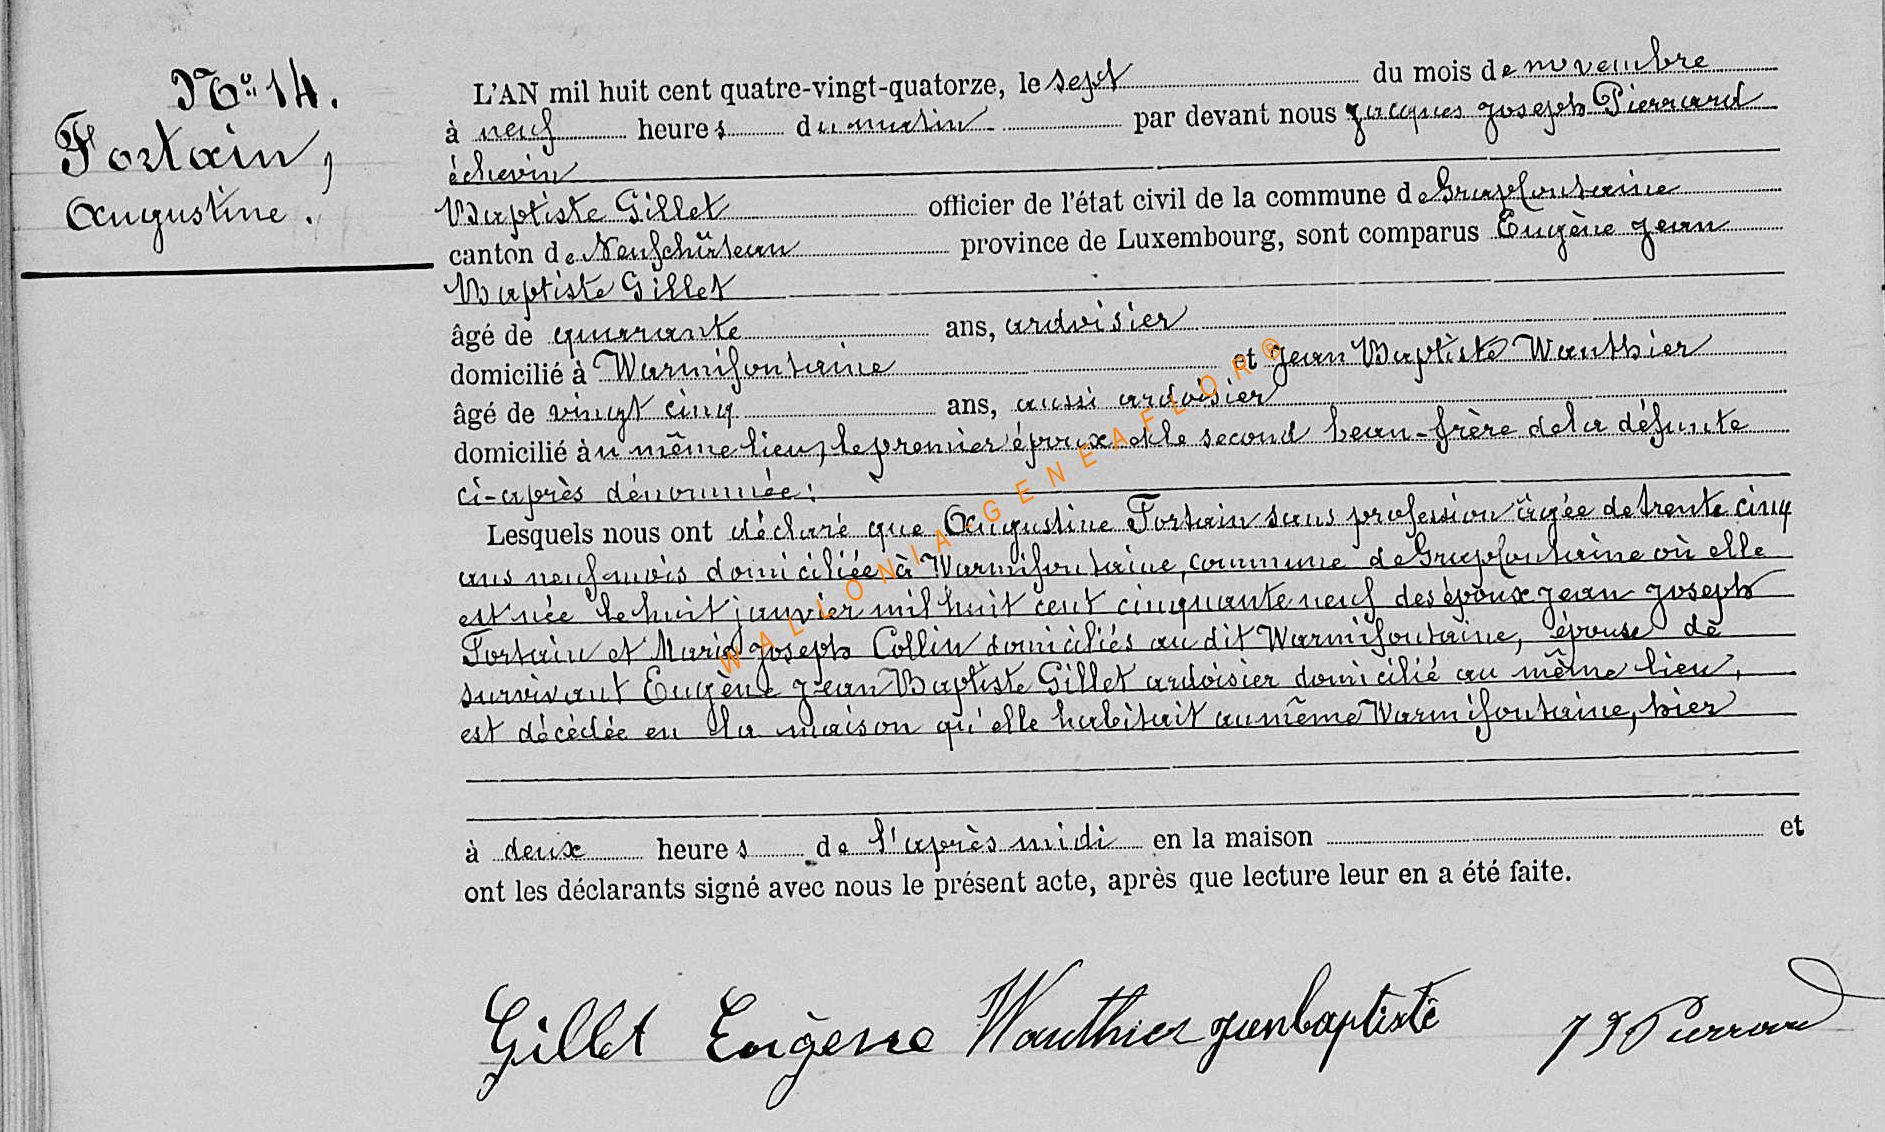 N° 14.
Fortain,
Augustine.
L'AN mil huit cent quatre-vingt-quatorze, le sept du mois de novembre
à neuf heures du matin par devant nous Jacques Joseph Pierrard
échevin
Baptiste Gillet officier de l'état civil de la commune de Grapfontaine
canton de Neufchâteau province de Luxembourg, sont comparus Eugène Jean
Baptiste Gillet
âgé de quarante ans, ardoisier
domicilié à Warmifontaine et Jean Baptiste Wauthier
âgé de vingt cinq ans, aussi ardoisier
domicilié au même lieu, le premier époux et le second beau-frère de la défunte
ci-après dénommée:
Lesquels nous ont déclaré que Augustine Fortain sans profession âgée de trente cinq
ans neuf mois domiciliée à Warmifontaine, commune de Grapfontaine où elle
est née le huit janvier mil huit cent cinquante neuf des époux Jean Joseph
Fortain et Marie Joseph Collin domiciliés au dit Warmifontaine, épouse de
survivant Eugène Jean Baptiste Gillet ardoisier domicilié au même lieu,
est décédée en la maison qu'elle habitait au même Warmifontaine, hier
à deux heures de l'après midi en la maison et
ont les déclarants signé avec nous le présent acte, après que lecture leur en a été faite.
Gillet Eugène Wauthier jeanbaptiste JJ Pierrard
WALLONIA-GENEAFLOR®